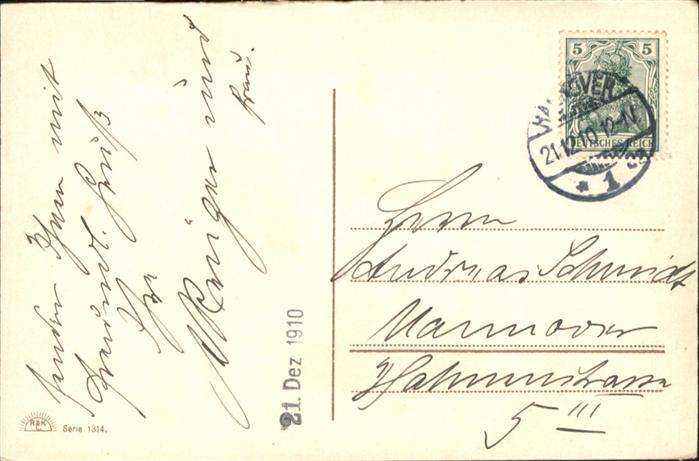 senden Ihnen mit
freundl. Gruß
Ihr
und
Frau.
21. Dez 1910
R&K
Serie 1314.
5 5
DEUTSCHES REICH
HANNOVER
21.12.10.12-1N
* 1
Herrn
Andreas Schmidt
Hannover
5 III